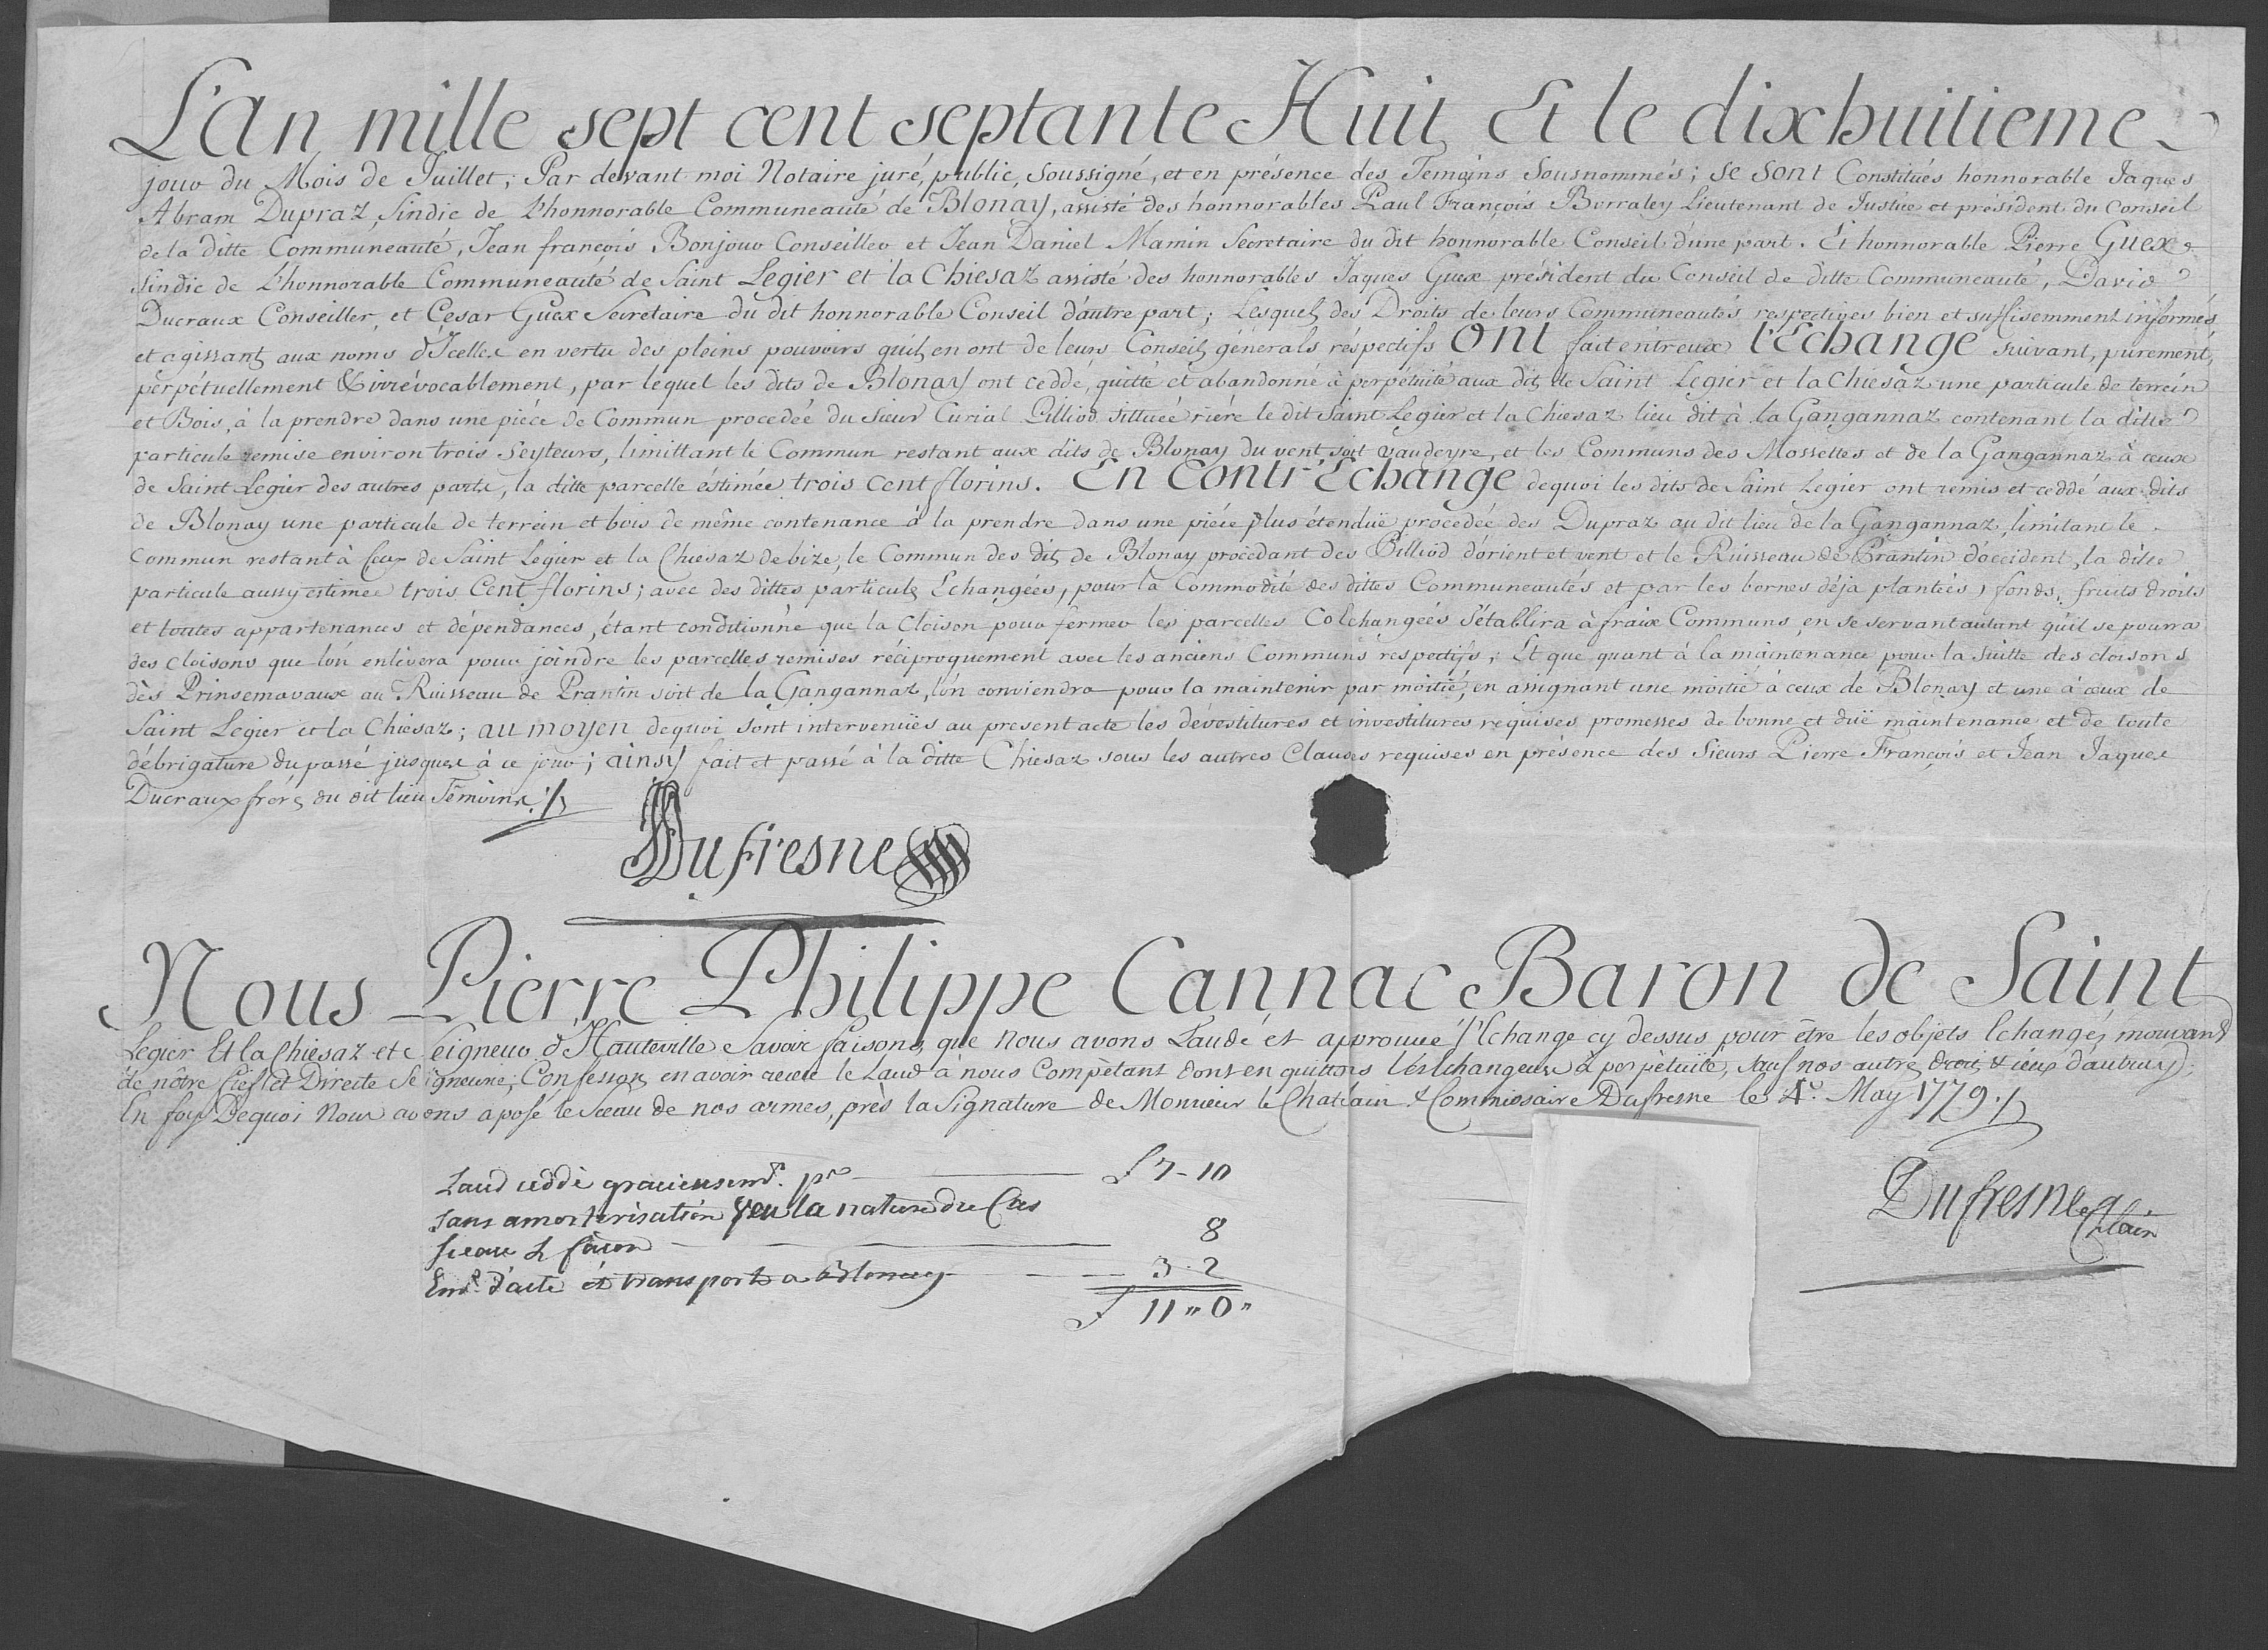 L'An mille sept cent septante Huit, Et le dixhuitieme
jour du Mois de Juillet; Par devant moi Notaire juré, public, soussigné, et en présence des Temoins sousnommés; se sont Constitués honnorable Jaques
Abram Dupraz, Sindic de L'honnorable Communeauté de Blonay, assisté des honnorables Paul François Borraley Lieutenant de Justice et président du Conseil
de la ditte Communeauté, Jean françois Bonjour Conseiller et Jean Daniel Mamin Secretaire du dit honnorable Conseil d'une part. Et honnorable Pierre Guex
Sindic de L'honnorable Communeauté de Saint Legier et la Chiesaz assisté des honnorables Jaques Guex président du Conseil de ditte Communeauté, David
Ducraux Conseiller, et Cesar Guex Secretaire du dit honnorable Conseil d'autre part; Lesquels des Droits de leurs Communeautés respectives bien et suffisemment informés
et agissants aux noms d'Icelles en vertu des pleins pouvoirs qu'ils en ont de leurs Conseils générals réspectifs ont fait entreux l'Echange suivant, purement,
perpétuellement & irrévocablement, par lequel les dits de Blonay ont ceddé, quitté et abandonné à perpétuité aux dits de Saint Legier et la Chiesaz une particule de terrein
et Bois, à la prendre dans une piéce de Commun procedée du Sieur Curial Pilliod sittuéé riére le dit Saint Legier et la Chiesaz lieu dit à la Gangannaz contenant la ditte
particule remise environ trois Seyteurs, limittant le Commun restant aux dits de Blonay du vent soit vaudeyre, et les Communs des Mossettes et de la Gangannaz à ceux
de Saint Legier des autres parts, la ditte parcelle éstimée trois cent florins. En Contr'Echange dequoi les dits de Saint Legier ont remis et ceddé aux dits
de Blonay une particule de terrein et bois de même contenance à la prendre dans une piéce plus étenduë procedée des Dupraz au dit lieu de la Gangannaz, limitant le
Commun restant à Ceux de Saint Legier et la Chiesaz de bize, le Commun des dits de Blonay procedant des Pilliod d'orient et vent et le Ruisseau de Prantin d'occident, la ditte
particule aussy estimée trois Cent florins; avec des dittes particules Echangées, pour la Commodité des dittes Communeautés et par les bornes déja plantées, fonds, fruits droits
et toutes appartenances et dépendances, étant conditionné que la Cloison pour fermer les parcelles Coléchangées s'établira à fraix Communs, en se servant autant qu'il se pourra
des cloisons que l'on enlévera pour joindre les parcelles remises réciproquement avec les anciens Communs respectifs; Et que quant à la maintenance pour la suitte des cloisons
dès Prinsemavaux au Ruisseau de Prantin soit de la Gangannaz, l'on conviendra pour la maintenir par moitié, en assignant une moitié à ceux de Blonay et une à ceux de
Saint Legier et la Chiesaz; au moyen dequoi sont intervenües au present acte les dévestitures et investitures requises promesses de bonne et duë maintenance et de toute
débrigature du passé jusques à ce jour; ainsy fait et passé à la ditte Chiesaz sous les autres Clauses requises en présence des Sieurs Pierre François et Jean Jaques
Ducraux frères du dit lieu Témoins.
Dufresne
Nous Pierre Philippe Cannac Baron de Saint
Legier Et la Chiesaz et c Seigneur d'Hauteville Savoir faisons, que Nous avons Laudé et approuvé l'Echange cy dessus pour être les objets Echangés mouvants
de nôtre Fief et Directe Seigneurie, Confessons en avoir receu le Laud à nous Compétant dont en quittons les Echangeurs à perpétuité, sauf nos autres droits & iceux d'autruy;
En foy Dequoi Nous avons aposé le Sceau de nos armes, près la Signature de Monsieur le Chatelain & Commissaire Dufresne le 4e. May 1779.
Laud ceddé gracieusemt. pr f 7-10
sans amortisation veu la nature du Cas
Sceau & façon 8
Emt. d'acte et transport a Blonay 3-2
f 11 " 0 "
Dufresne
Chlain